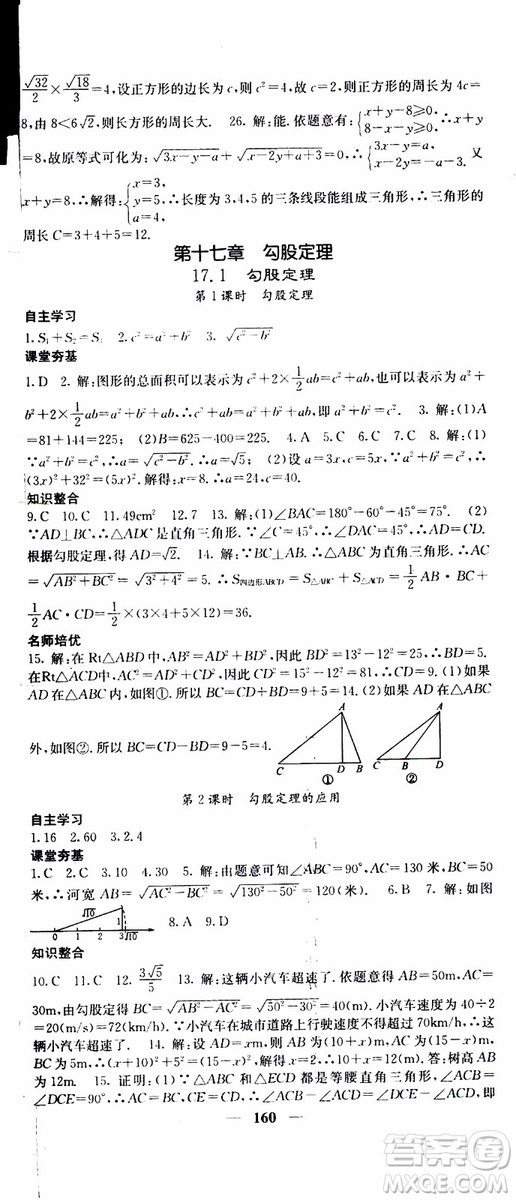 √32/2 × √18/3 = 4, 设正方形的边长为 c, 则 c² = 4, 故 c = 2, 所以正方形的周长为
8, 由 8 < 6√2, 则长方形的周长大. 26. 解: 能. 依题意有: {x + y − 8 ≥ 0, 8 − x − y ≥ 0. ∴ x + y
= 8, 故原等式可化为: √(3x − y − a) + √(x − 2y + a + 3) = 0. ∴ {3x − y = a,
x + y = 8, ∴ 解得 {x = 3, y = 5, ∴ 长度为 3, 4, 5 的三条线段能组成三角形, ∴ 三角形的
周长 C = 3 + 4 + 5 = 12.
第十七章 勾股定理
17.1 勾股定理
第1课时 勾股定理
自主学习
1. S₁ + S₂ = S₃ 2. a² + b² = c² 3. √(c² − b²)
课堂夯基
1. D 2. 解: 图形的总面积可以表示为 c² + 2 × 1/2 ab = c² + ab, 也可以表示为 a² +
b² + 2 × 1/2 ab = a² + b² + ab, ∴ c² + ab = a² + b² + ab, ∴ a² + b² = c². 3. 解: (1) A
= 81 + 144 = 225; (2) B = 625 − 400 = 225. 4. A 5. C 6. A 7. 5 8. 解: (1)
∵ a² + b² = c², ∴ a = √(c² − b²), ∴ a = √5; (2) 设 a = 3x, c = 5x, ∵ a² + b² = c², ∴
(3x)² + 32² = (5x)². 解得 x = 8. ∴ a = 24, c = 40.
知识整合
9. C 10. C 11. 49cm² 12. 7 13. 解: (1) ∠BAC = 180° − 60° − 45° = 75°. (2)
∵ AD ⊥ BC, ∴ △ADC 是直角三角形, ∵ ∠C = 45°, ∴ ∠DAC = 45°, ∴ AD = CD.
根据勾股定理, 得 AD = √2. 14. 解: 连接 AC. ∵ ∠ABC = 90°, ∴ AC
= √(AB² + BC²) = √(3² + 4²) = 5. ∴ S四边形ABCD = S△ABC + S△ACD = 1/2 AB · BC +
1/2 AC · CD = 1/2 × (3 × 4 + 5 × 12) = 36.
名师培优
15. 解: 在 Rt△ABD 中, AB² = AD² + BD², 因此 BD² = AB² − AD², 所以 BD = 5.
在Rt△ACD 中, AC² = AD² + CD², 因此 CD² = AC² − AD², 所以 CD = 9. (1) 如果
AD 在△ABC 内, 如图①. 所以 BC = CD + BD = 9 + 5 = 14; (2) 如果 AD 在△ABC
外, 如图②. 所以 BC = CD − BD = 9 − 5 = 4.
A C D B ① A C B D ②
第2课时 勾股定理的应用
自主学习
1. 16 2. 60 3. 2.4
课堂夯基
1. C 2. C 3. 10 4. 30 5. 解: 由题意可得 AB ⊥ BC, AC = 130 米, BC = 50
米, ∴ 河宽 AB = √(AC² − BC²) = √(130² − 50²) = 120(米). 6. B 7. 解: 如图
√10 0 1 2 3 √10 8. A 9. D
知识整合
10. C 11. C 12. 3√5/5 13. 解: 这辆小汽车超速了. ∵ AB = 50m, AC =
30m, 由勾股定理可得 BC = √(AB² − AC²) = √(50² − 30²) = 40(m). 小汽车速度为 40 ÷ 2
= 20(m/s) = 72(km/h). ∵ 小汽车在城市道路上行驶速度不得超过 70km/h, ∴ 这
辆小汽车超速了. 14. 解: 设 AD = xm, 则由题意可得 BD + BC = AD + AC = 10 +
5, ∴ BC = 5 + x. ∴ (x + 10)² + 5² = (5 + x)², 解得 x = 2. ∴ 10 + x = 12. 答: 树高 AB
为 12m. 15. 证明: (1) ∵ △ABC 和 △ECD 都是等腰直角三角形, ∴ ∠ACB =
∠DCE = 90°, ∴ ∠ACE + ∠ACD = ∠BCD + ∠ACD, ∴ ∠ACE = ∠BCD, 即在
160
答案圈
MXQE.COM